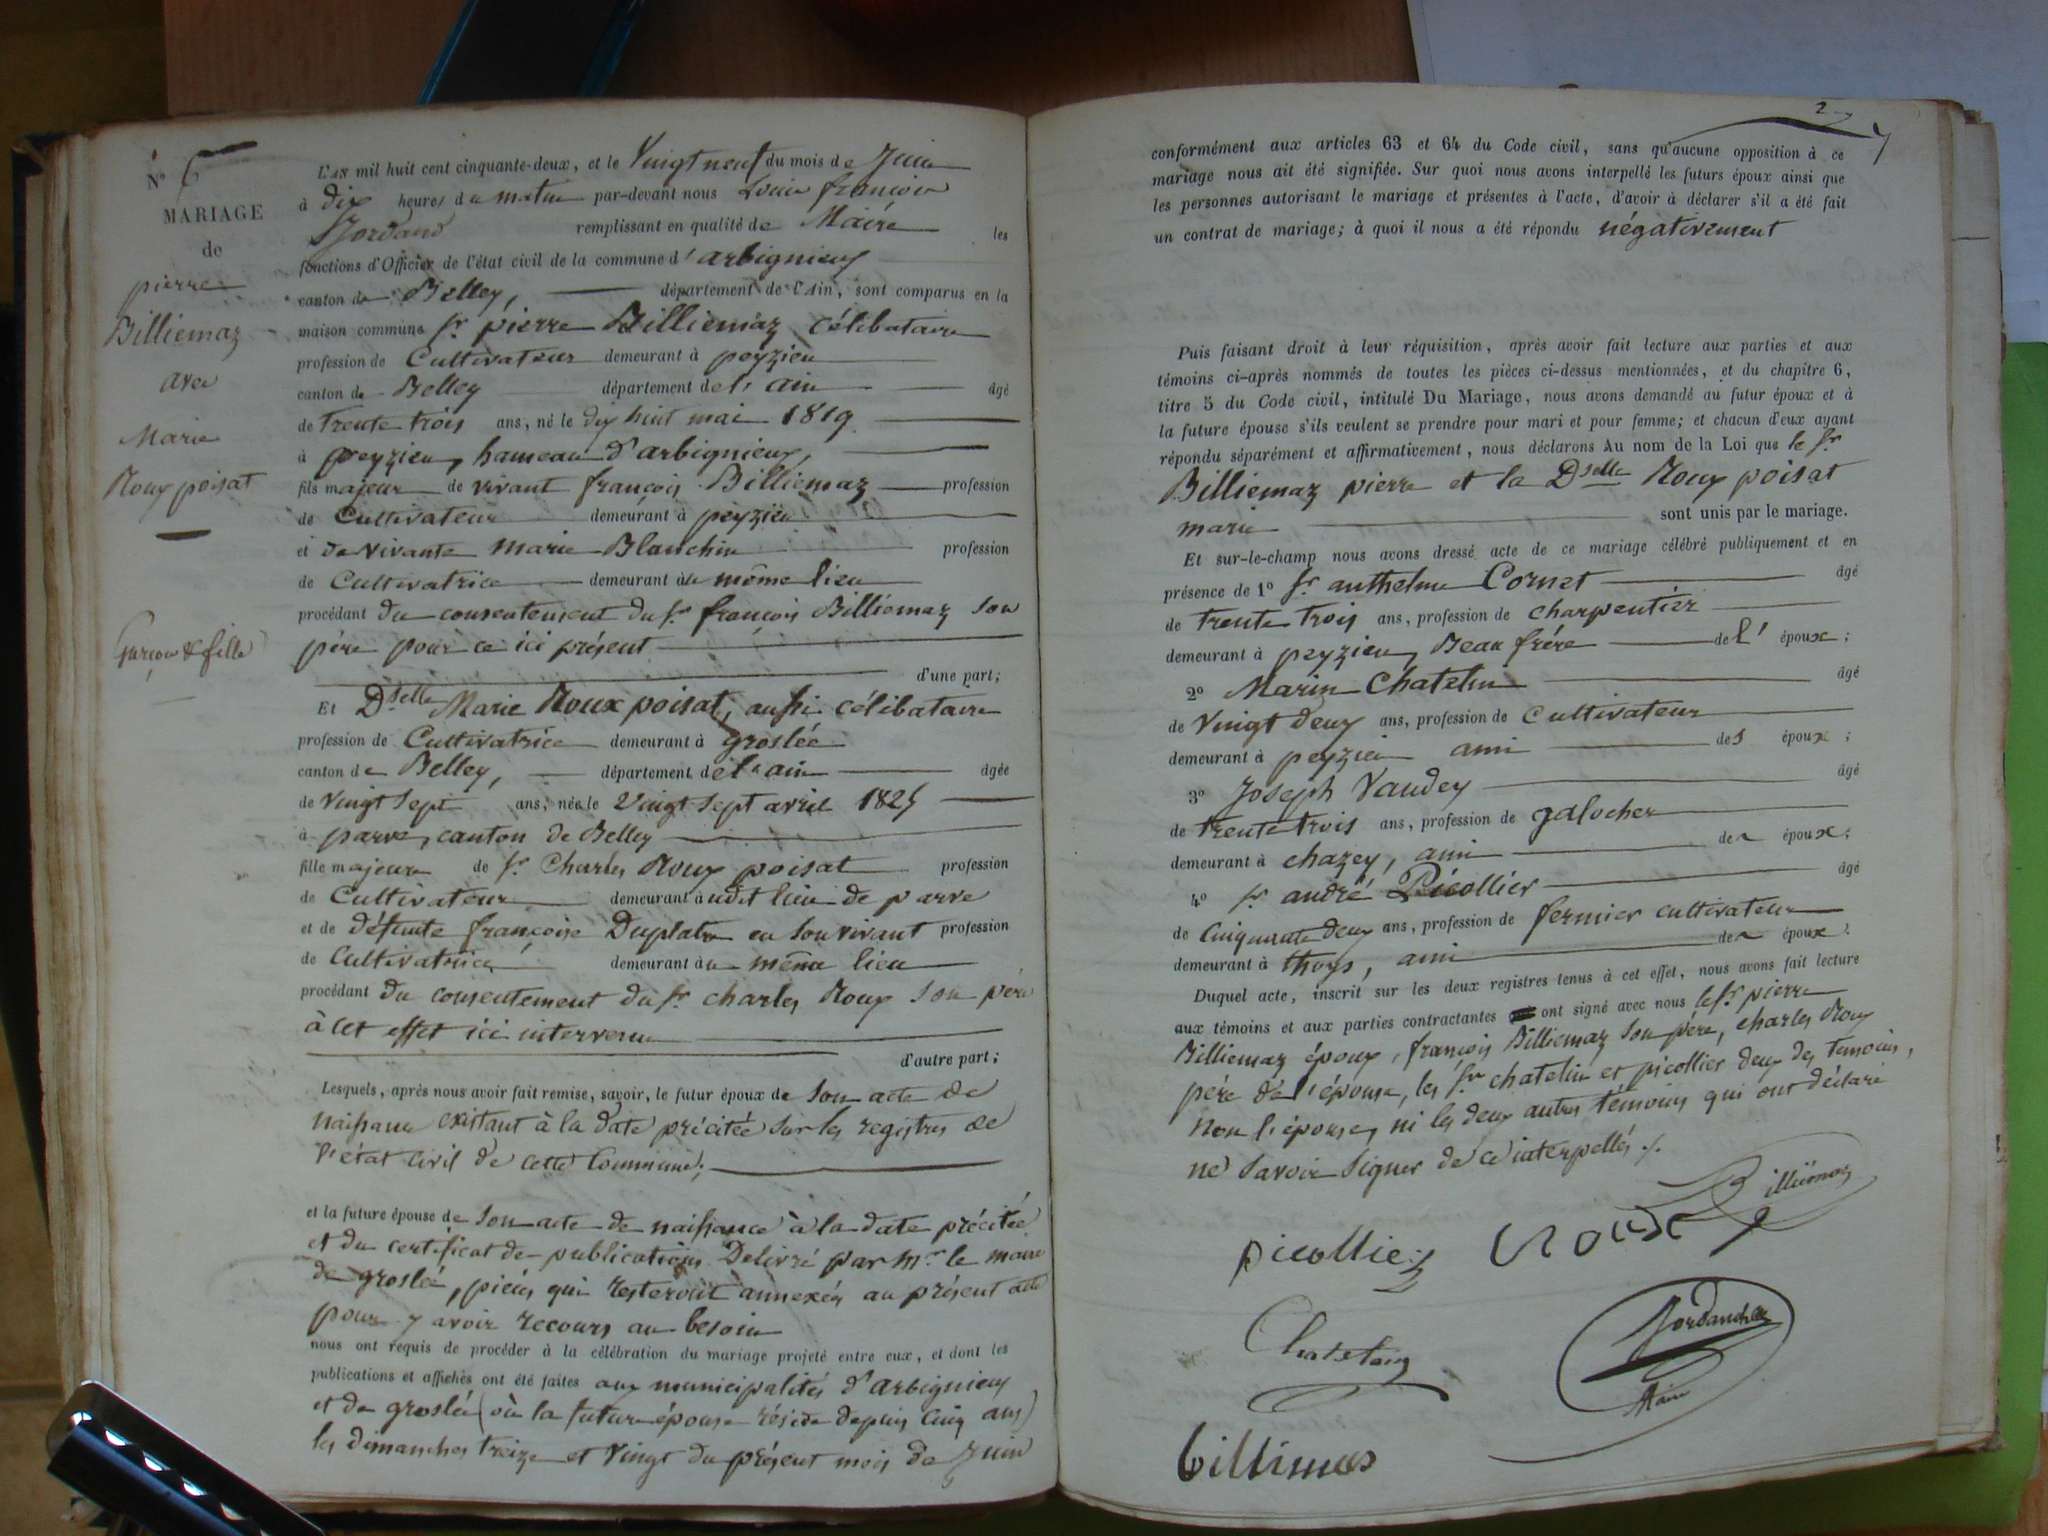 N° 6
MARIAGE
de
pierre
Billiemaz
avec
Marie
Roux poisat
Garçon & fille
L'AN mil huit cent cinquante-deux, et le Vingt neuf du mois de Juin
à dix heures du matin par-devant nous Louis françois
Jordand remplissant en qualité de Maire les
fonctions d'Officier de l'état civil de la commune d'arbignieux
canton de Belley, département de l'Ain, sont comparus en la
maison commune Sr pierre Billiemaz célibataire
profession de Cultivateur demeurant à peyzieu
canton de Belley département de l'ain âgé
de trente trois ans, né le dix huit mai 1819
à peyzieu, hameau d'arbignieux,
fils majeur de vivant françois Billiemaz profession
de Cultivateur demeurant à peyzieu
et de vivante Marie Blanchin profession
de Cultivatrice demeurant au même lieu
procédant du consentement du Sr françois Billiemaz son
père pour ce ici présent
d'une part;
Et Dselle Marie Roux poisat, aussi célibataire
profession de Cultivatrice demeurant à groslée
canton de Belley, département de l'ain âgée
de vingt sept ans, née le vingt sept avril 1825
à parve, canton de Belley
fille majeure de Sr Charles Roux poisat profession
de Cultivateur demeurant audit lieu de parve
et de défunte françoise Duplatre en son vivant profession
de Cultivatrice demeurant au même lieu
procédant du consentement du Sr charles Roux son père
à cet effet ici intervenu
d'autre part;
Lesquels, après nous avoir fait remise, savoir, le futur époux de son acte de
naissance existant à la date précitée sur les registres de
l'état civil de cette Commune;
et la future épouse de son acte de naissance à la date précitée
et du certificat de publications Delivré par Mr le maire
de groslée, pièces qui resteront annexées au présent acte
pour y avoir recours au besoin
nous ont requis de procéder à la célébration du mariage projeté entre eux, et dont les
publications et affichés ont été faites aux municipalités d'arbignieux
et de groslée (où la future épouse réside depuis cinq ans)
les dimanches treize et vingt du présent mois de Juin
2
7
conformément aux articles 63 et 64 du Code civil, sans qu'aucune opposition à ce
mariage nous ait été signifiée. Sur quoi nous avons interpellé les futurs époux ainsi que
les personnes autorisant le mariage et présentes à l'acte, d'avoir à déclarer s'il a été fait
un contrat de mariage; à quoi il nous a été répondu négativement
Puis faisant droit à leur réquisition, après avoir fait lecture aux parties et aux
témoins ci-après nommés de toutes les pièces ci-dessus mentionnées, et du chapitre 6,
titre 5 du Code civil, intitulé Du Mariage, nous avons demandé au futur époux et à
la future épouse s'ils veulent se prendre pour mari et pour femme; et chacun d'eux ayant
répondu séparément et affirmativement, nous déclarons Au nom de la Loi que le Sr
Billiemaz pierre et la Dselle Roux poisat
marie sont unis par le mariage.
Et sur-le-champ nous avons dressé acte de ce mariage célébré publiquement et en
présence de 1° Sr anthelme Cornet âgé
de trente trois ans, profession de charpentier
demeurant à peyzieu, Beau frère de l' époux;
2° Marin Chatelin âgé
de vingt deux ans, profession de Cultivateur
demeurant à peyzieu ami des époux;
3° Joseph Vaudey âgé
de trente trois ans, profession de galocher
demeurant à chazey, ami de époux;
4° Sr andré Picollier âgé
de cinquante deux ans, profession de fermier cultivateur
demeurant à thoys, ami de époux.
Duquel acte, inscrit sur les deux registres tenus à cet effet, nous avons fait lecture
aux témoins et aux parties contractantes ont signé avec nous le Sr pierre
Billiemaz époux, françois Billiemaz son père, charles Roux
père de l'épouse, les Srs chatelin et picollier deux des temoins,
non l'épouse, ni les deux autres témoins qui ont déclaré
ne savoir signer de ce interpellés ./.
Billiemaz
picollier
Roux
Chatelain
Jordand
Maire
billiemas